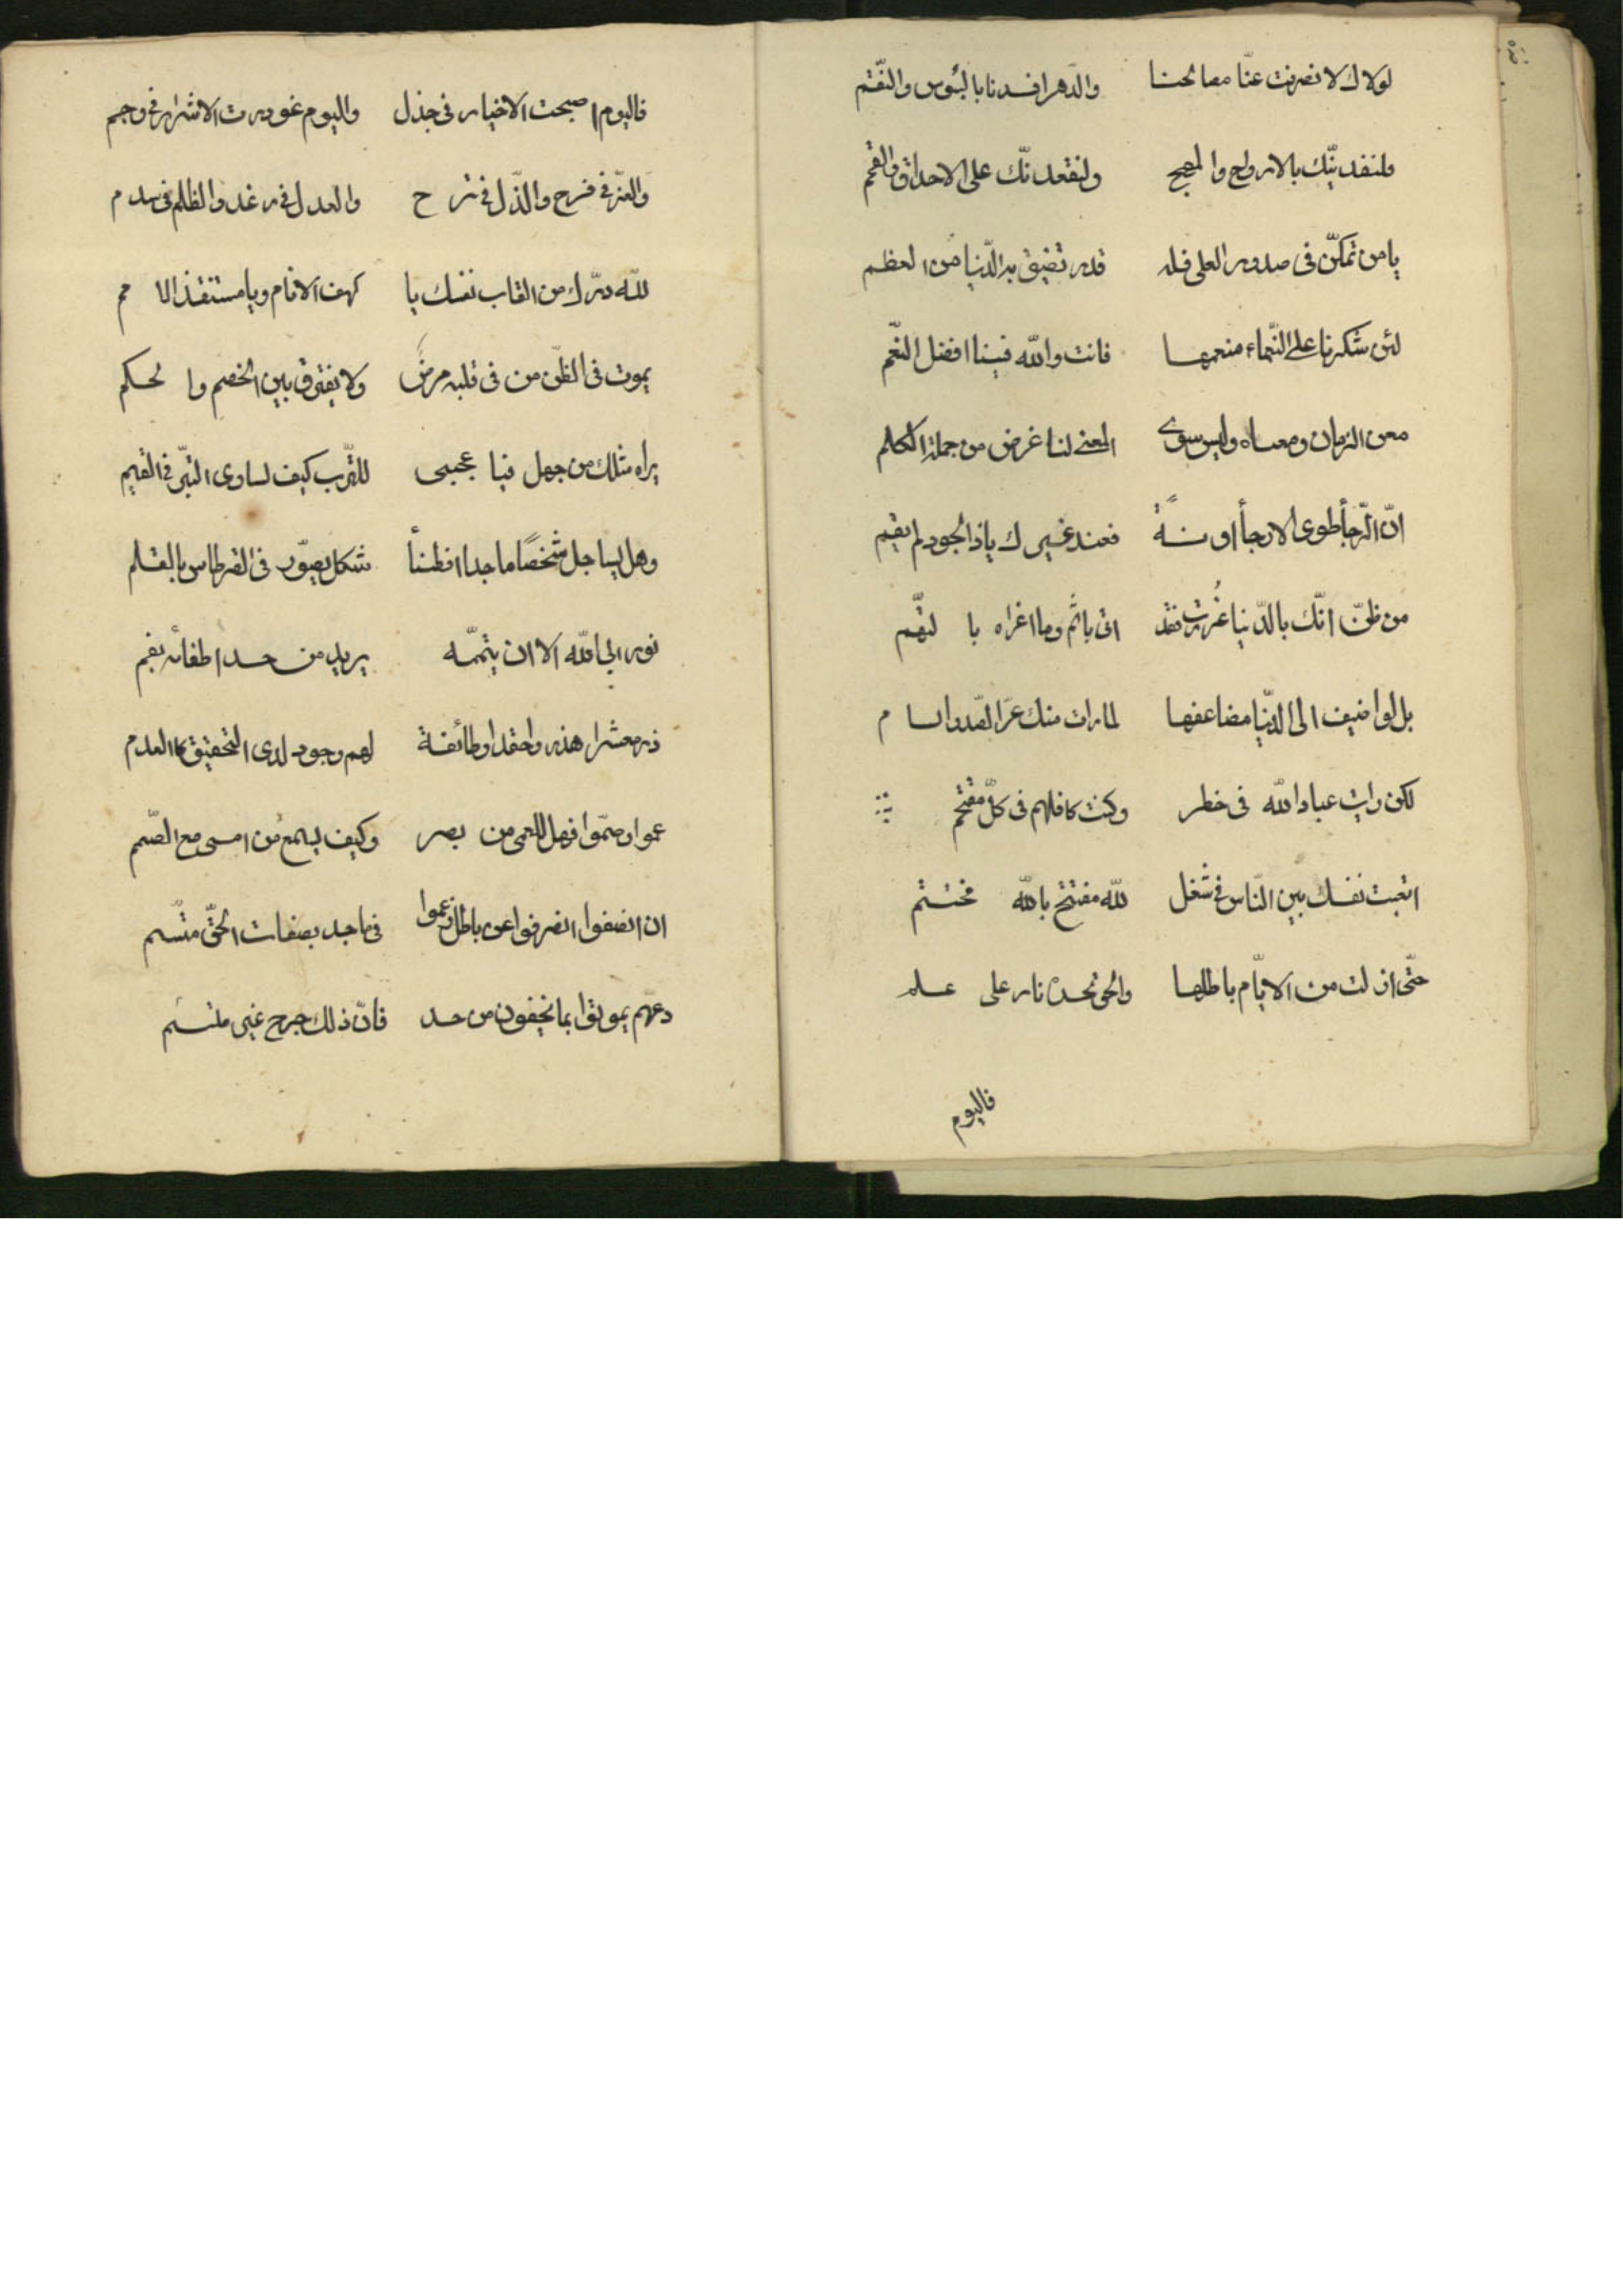 لولاك لانصرفت عنّا مصالحنا والدّهر افسدنا بالبئوس والنّقم
فلنفدينّك بالارواح والمهج ولنقعدنّك على الاحداق والقمم
يا من تمكّن فى صدور العلى فله قدر تضيق به الدّنيا من العظم
لئن شكرنا على النّعماء منعمها فانت والله فينا افضل النّعم
معن الزمان ومعناه وليس سوى المعنى لنا غرض من جملة الكلم
انّ الرّجأ طوى الارجأ اونة فعند غيرك ياذا الجود لم يقم
من ظنّ انّك بالدّنيا غُررت فقد اتى باثم وما اغراه بالتهّم
بل لو اضيف الى الدّنيا مضاعفها لما رات منك غرّ القدر والسام
لكن رايت عباد الله فى خطر وكنت كافلهم فى كلّ مقتحم
اتعبت نفسك بين النّاس فى شغل لله مفتتح بالله مختتم
حتّى ازلت من الايّام باطلها والحق نحن نار على علم
فاليوم
فاليوم اصبحت الاخيار فى جذل واليوم غودرت الاشرار فى وجم
والعزّ فى فرح والذّل فى ترح والعدل فى رغد والظلم فى سدم
للّه درّك من القاب نفسك يا كهف الانام ويا مستنقذ الامم
يموت فى الظّن من فى قلبه مرض ولا يفرق بين الخصم والحكم
يراه مثلك من جهل فيا عجبى للتّرب كيف لساوى التبّر فى القيم
وهل يساجل شخصًا ماجدا فطنأ شكل يصوّر فى القرطاس بالقلم
نور ابى الله الا ان يتممّه يريد من حسد اطفائه بفم
ذر معشرا هذروا حقدا وطائفة لهم وجود لدى التحقيق كالعدم
عموا وصمّوا فهل للعمى من بصر وكيف يسمع من امسى مع الصّمم
ان انصفوا انصرفوا عن باطل زعموا فى ماجد بصفات الحقّ متّسم
دعهم يموتوا بما يخفون من حسد فانّ ذلك جرح غير ملتئم